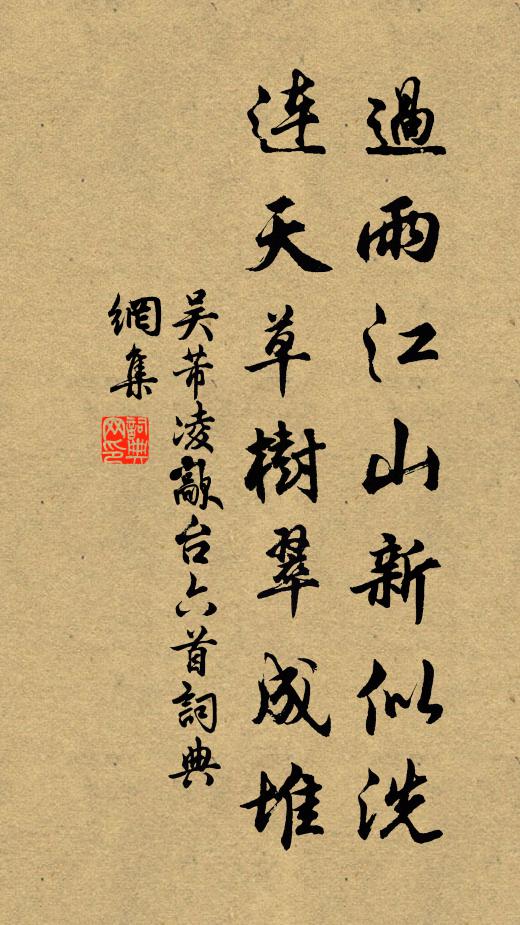 過雨江山新似洗
連天草樹翠成堆
吴芾凌歊台六首詞典
網集
詞典网印